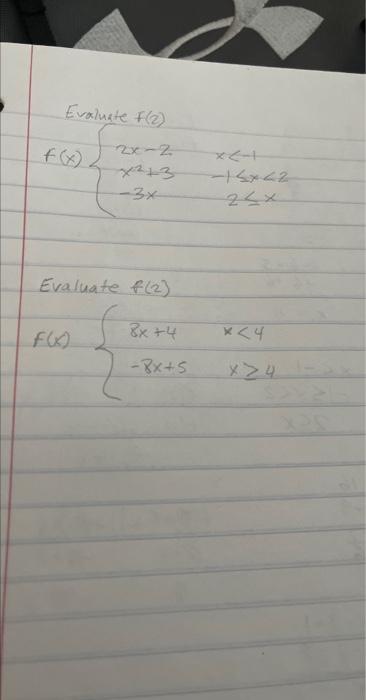 Evaluate f(2)
2x-2 x<-1
f(x) { x²+3 -1≤x<2
-3x 2≤x
Evaluate f(2)
8x+4 x<4
f(x) {
-8x+5 x≥4